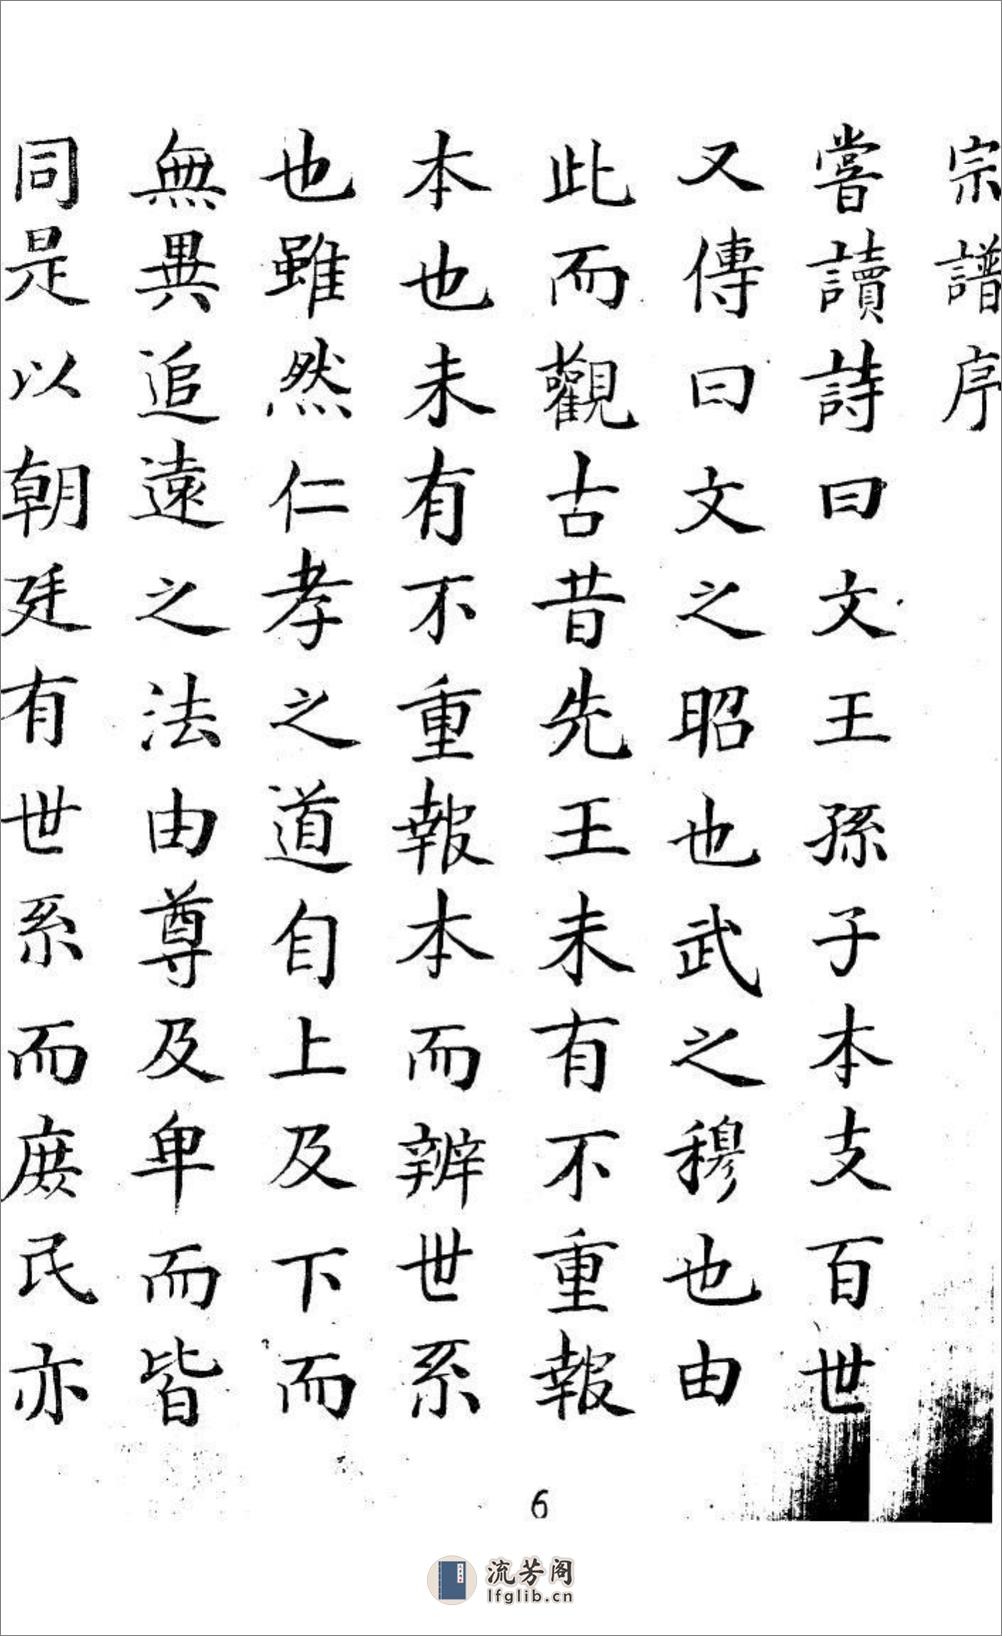 宗譜序
嘗讀詩曰文王孫子本支百世
又傳曰文之昭也武之穆也由
此而觀古昔先王未有不重報
本也未有不重報本而辨世系
也雖然仁孝之道自上及下而
無異追遠之法由尊及卑而皆
同是以朝廷有世系而庶民亦
6
流芳阁
lfglib.cn